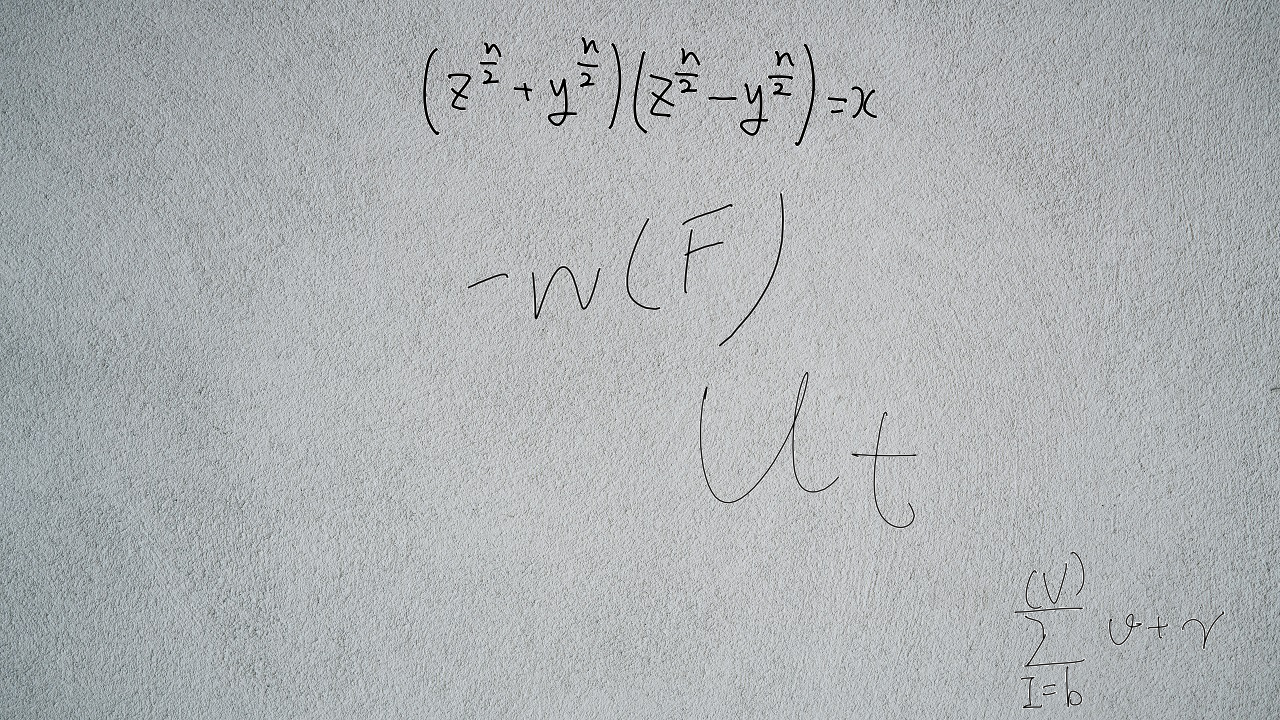 (z^{\frac{n}{2}} + y^{\frac{n}{2}})(z^{\frac{n}{2}} - y^{\frac{n}{2}}) = x
-n(F)
U t
\sum_{I=b}^{(V)} v + γ